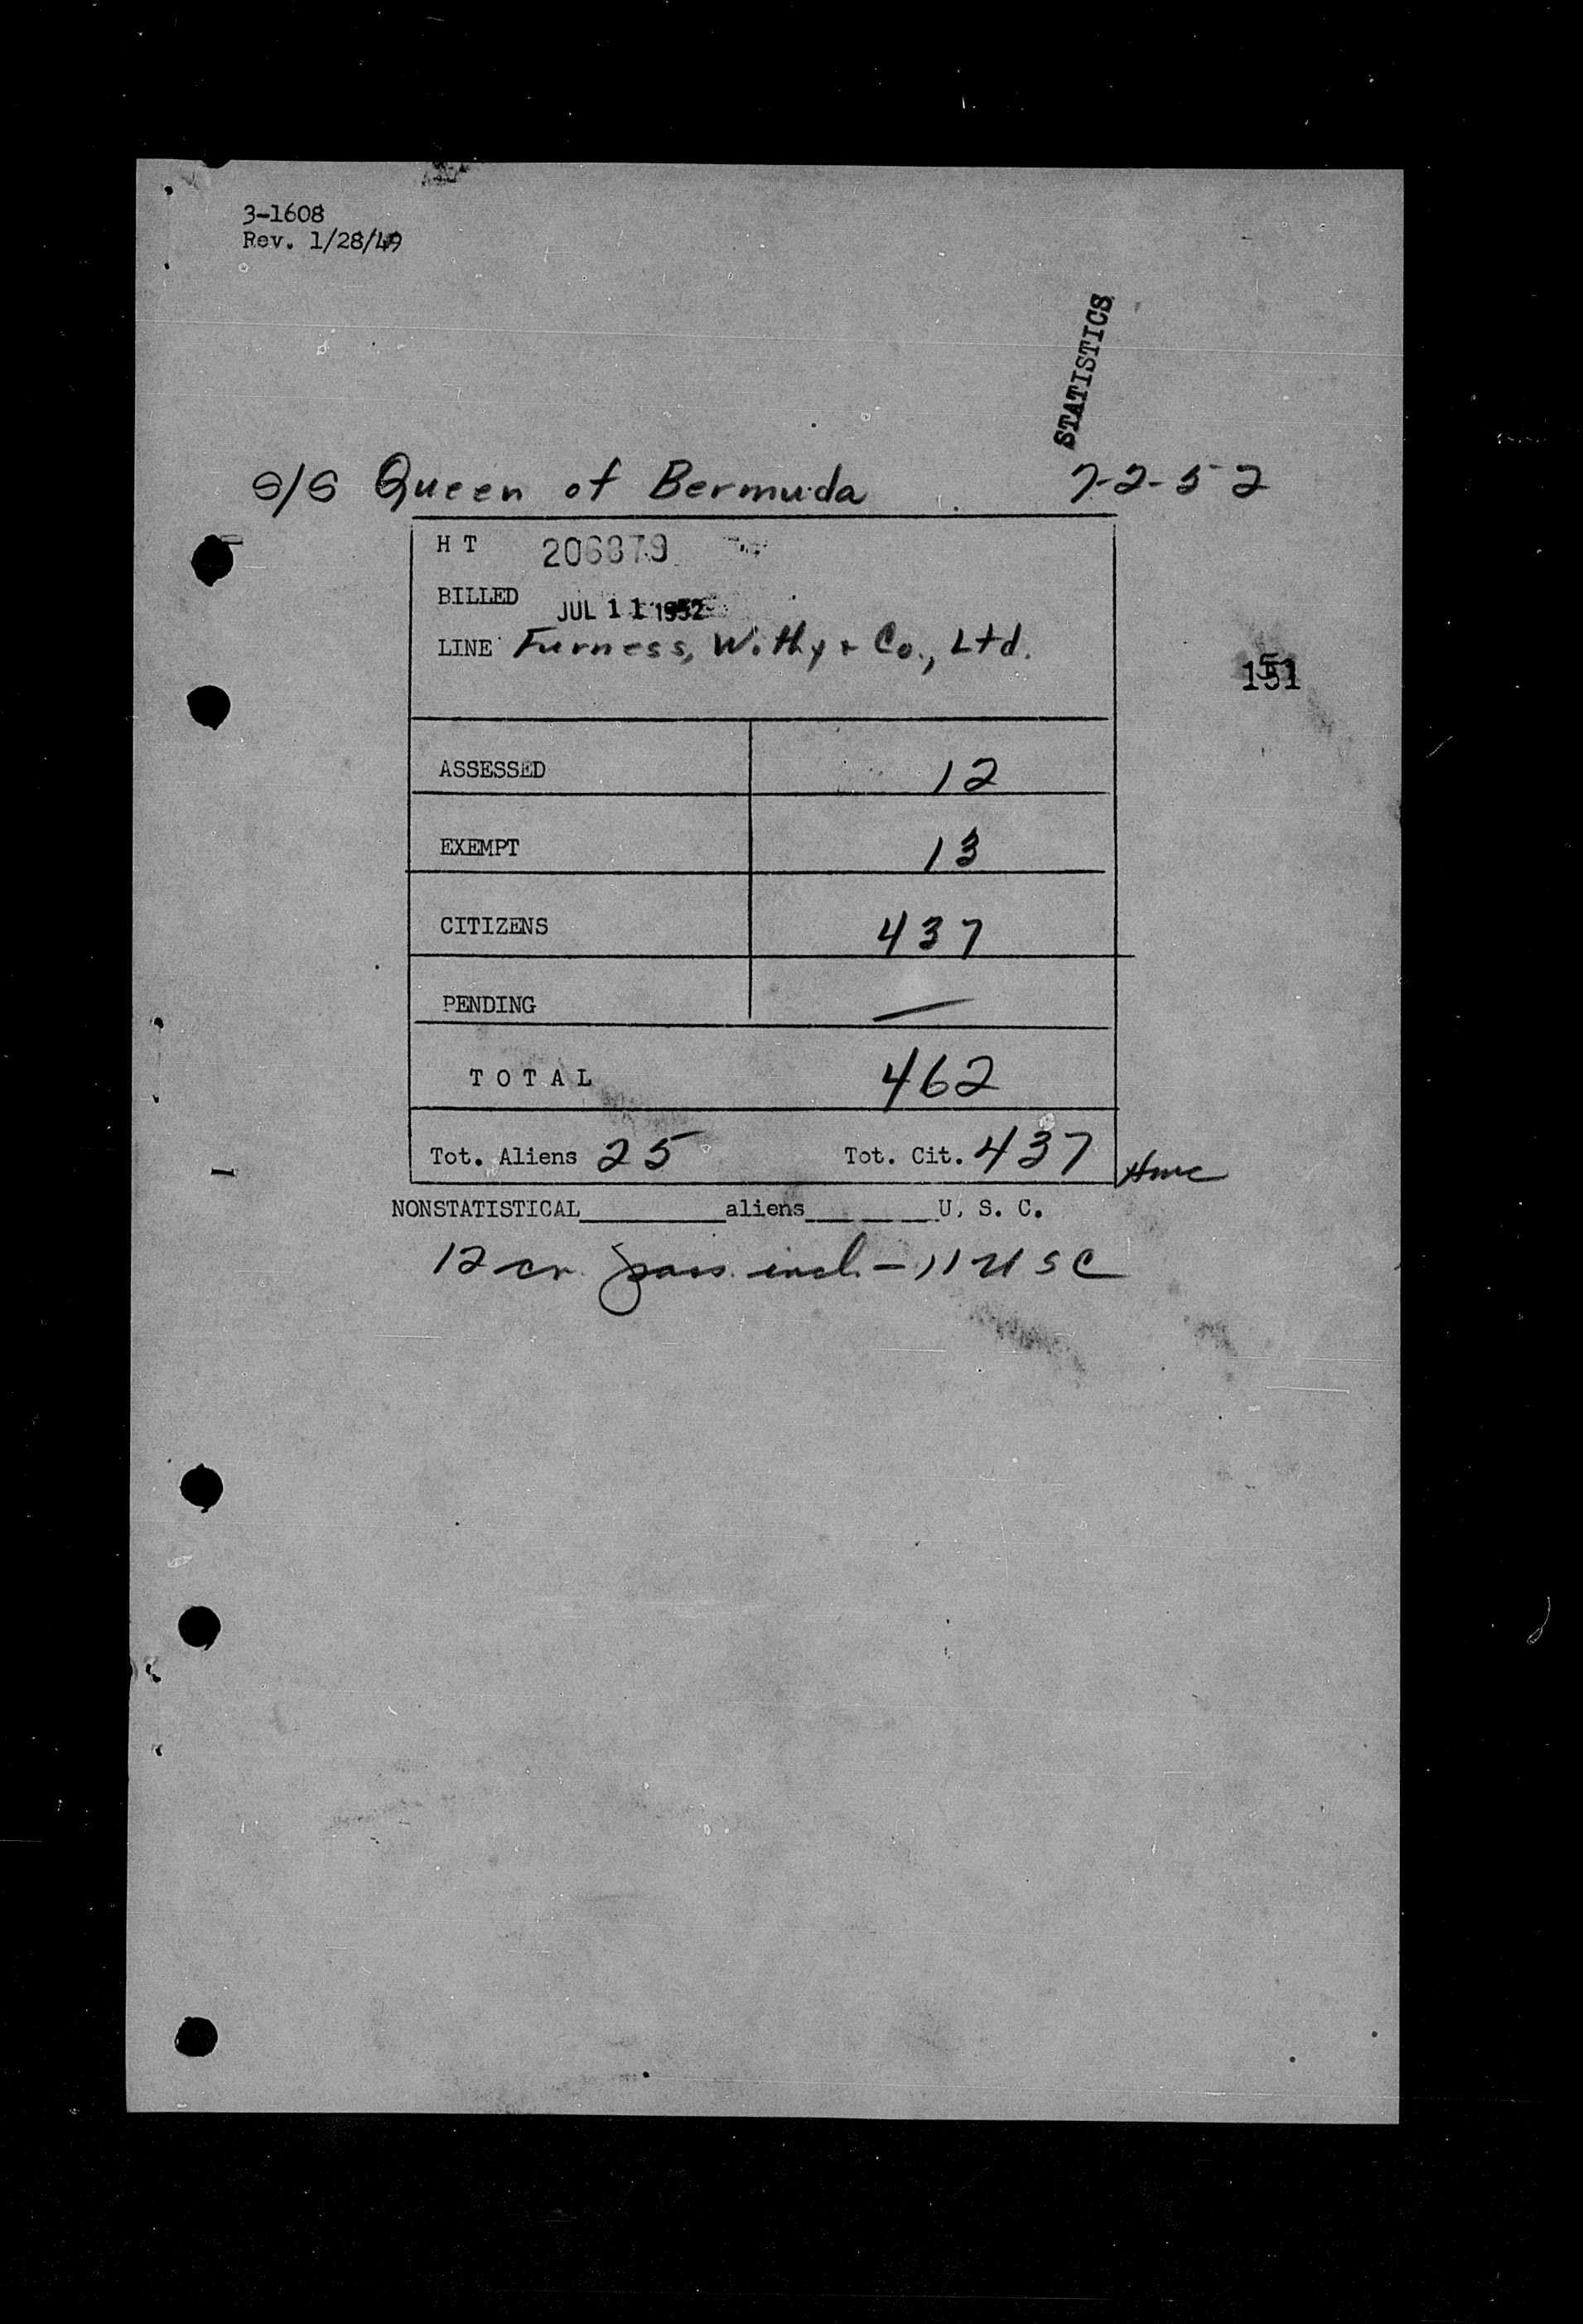 3-1608
Rev. 1/28/49
STATISTICS
S/S Queen of Bermuda 7-2-52
H T 206879
BILLED JUL 11 1952
LINE Furness, Withy & Co., Ltd.
151
ASSESSED 12
EXEMPT 13
CITIZENS 437
PENDING —
T O T A L 462
Tot. Aliens 25 Tot. Cit. 437
NONSTATISTICAL________aliens________U. S. C.
12 cr. pass. incl. - 11 USC